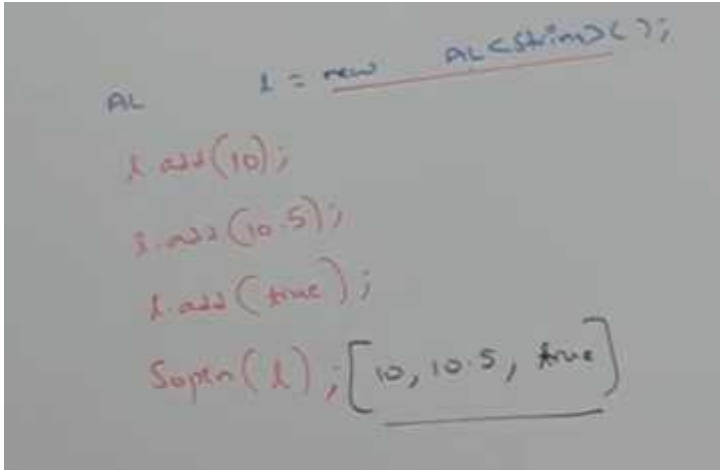 AL l = new AL<String>();
l.add(10);
l.add(10.5);
l.add(true);
Sopln(l); [10, 10.5, true]